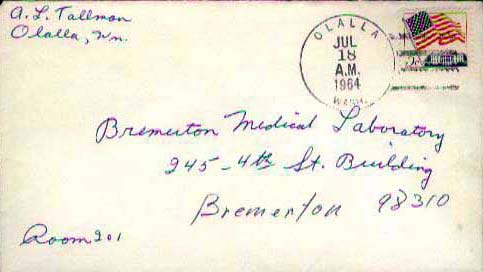 A. L. Tallman
Olalla, Wn.
OLALLA
JUL
18
A.M.
1964
WASH.
Bremerton Medical Laboratory
245-4th St. Building
Bremerton 98310
Room 201